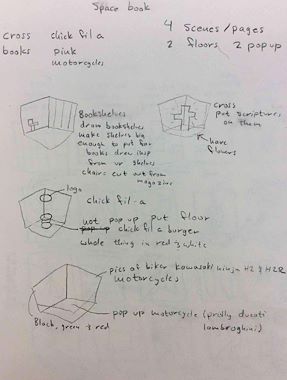 Space book
cross chick fil a
books pink
motorcycles
4 scenes/pages
2 floors 2 pop up
Bookshelves
draw bookshelves
make shelves big
enough to put for
books draw insp
from ur shelves
chairs cut out from
magazine
cross
put scriptures
on them
have
flowers
logo
chick fil-a
not pop up put floor
pop up chick fil a burger
whole thing in red & white
pics of biker kawasaki ninja H2 & H2R
motorcycles
pop up motorcycle (prolly ducati
lambroghini)
Black, green & red